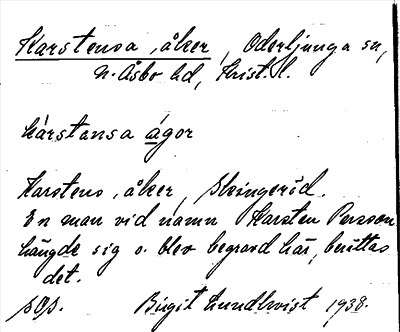 Karstensa åker, Oderljunga sn,
N. Åsbo hd, Krist. l.
kárstansa ágor
Karstens åker, Skingeröd.
En man vid namn Karsten Persson
hängde sig o. blev begravd här, berättas
det.
sOs. Birgit Lundkvist 1938.